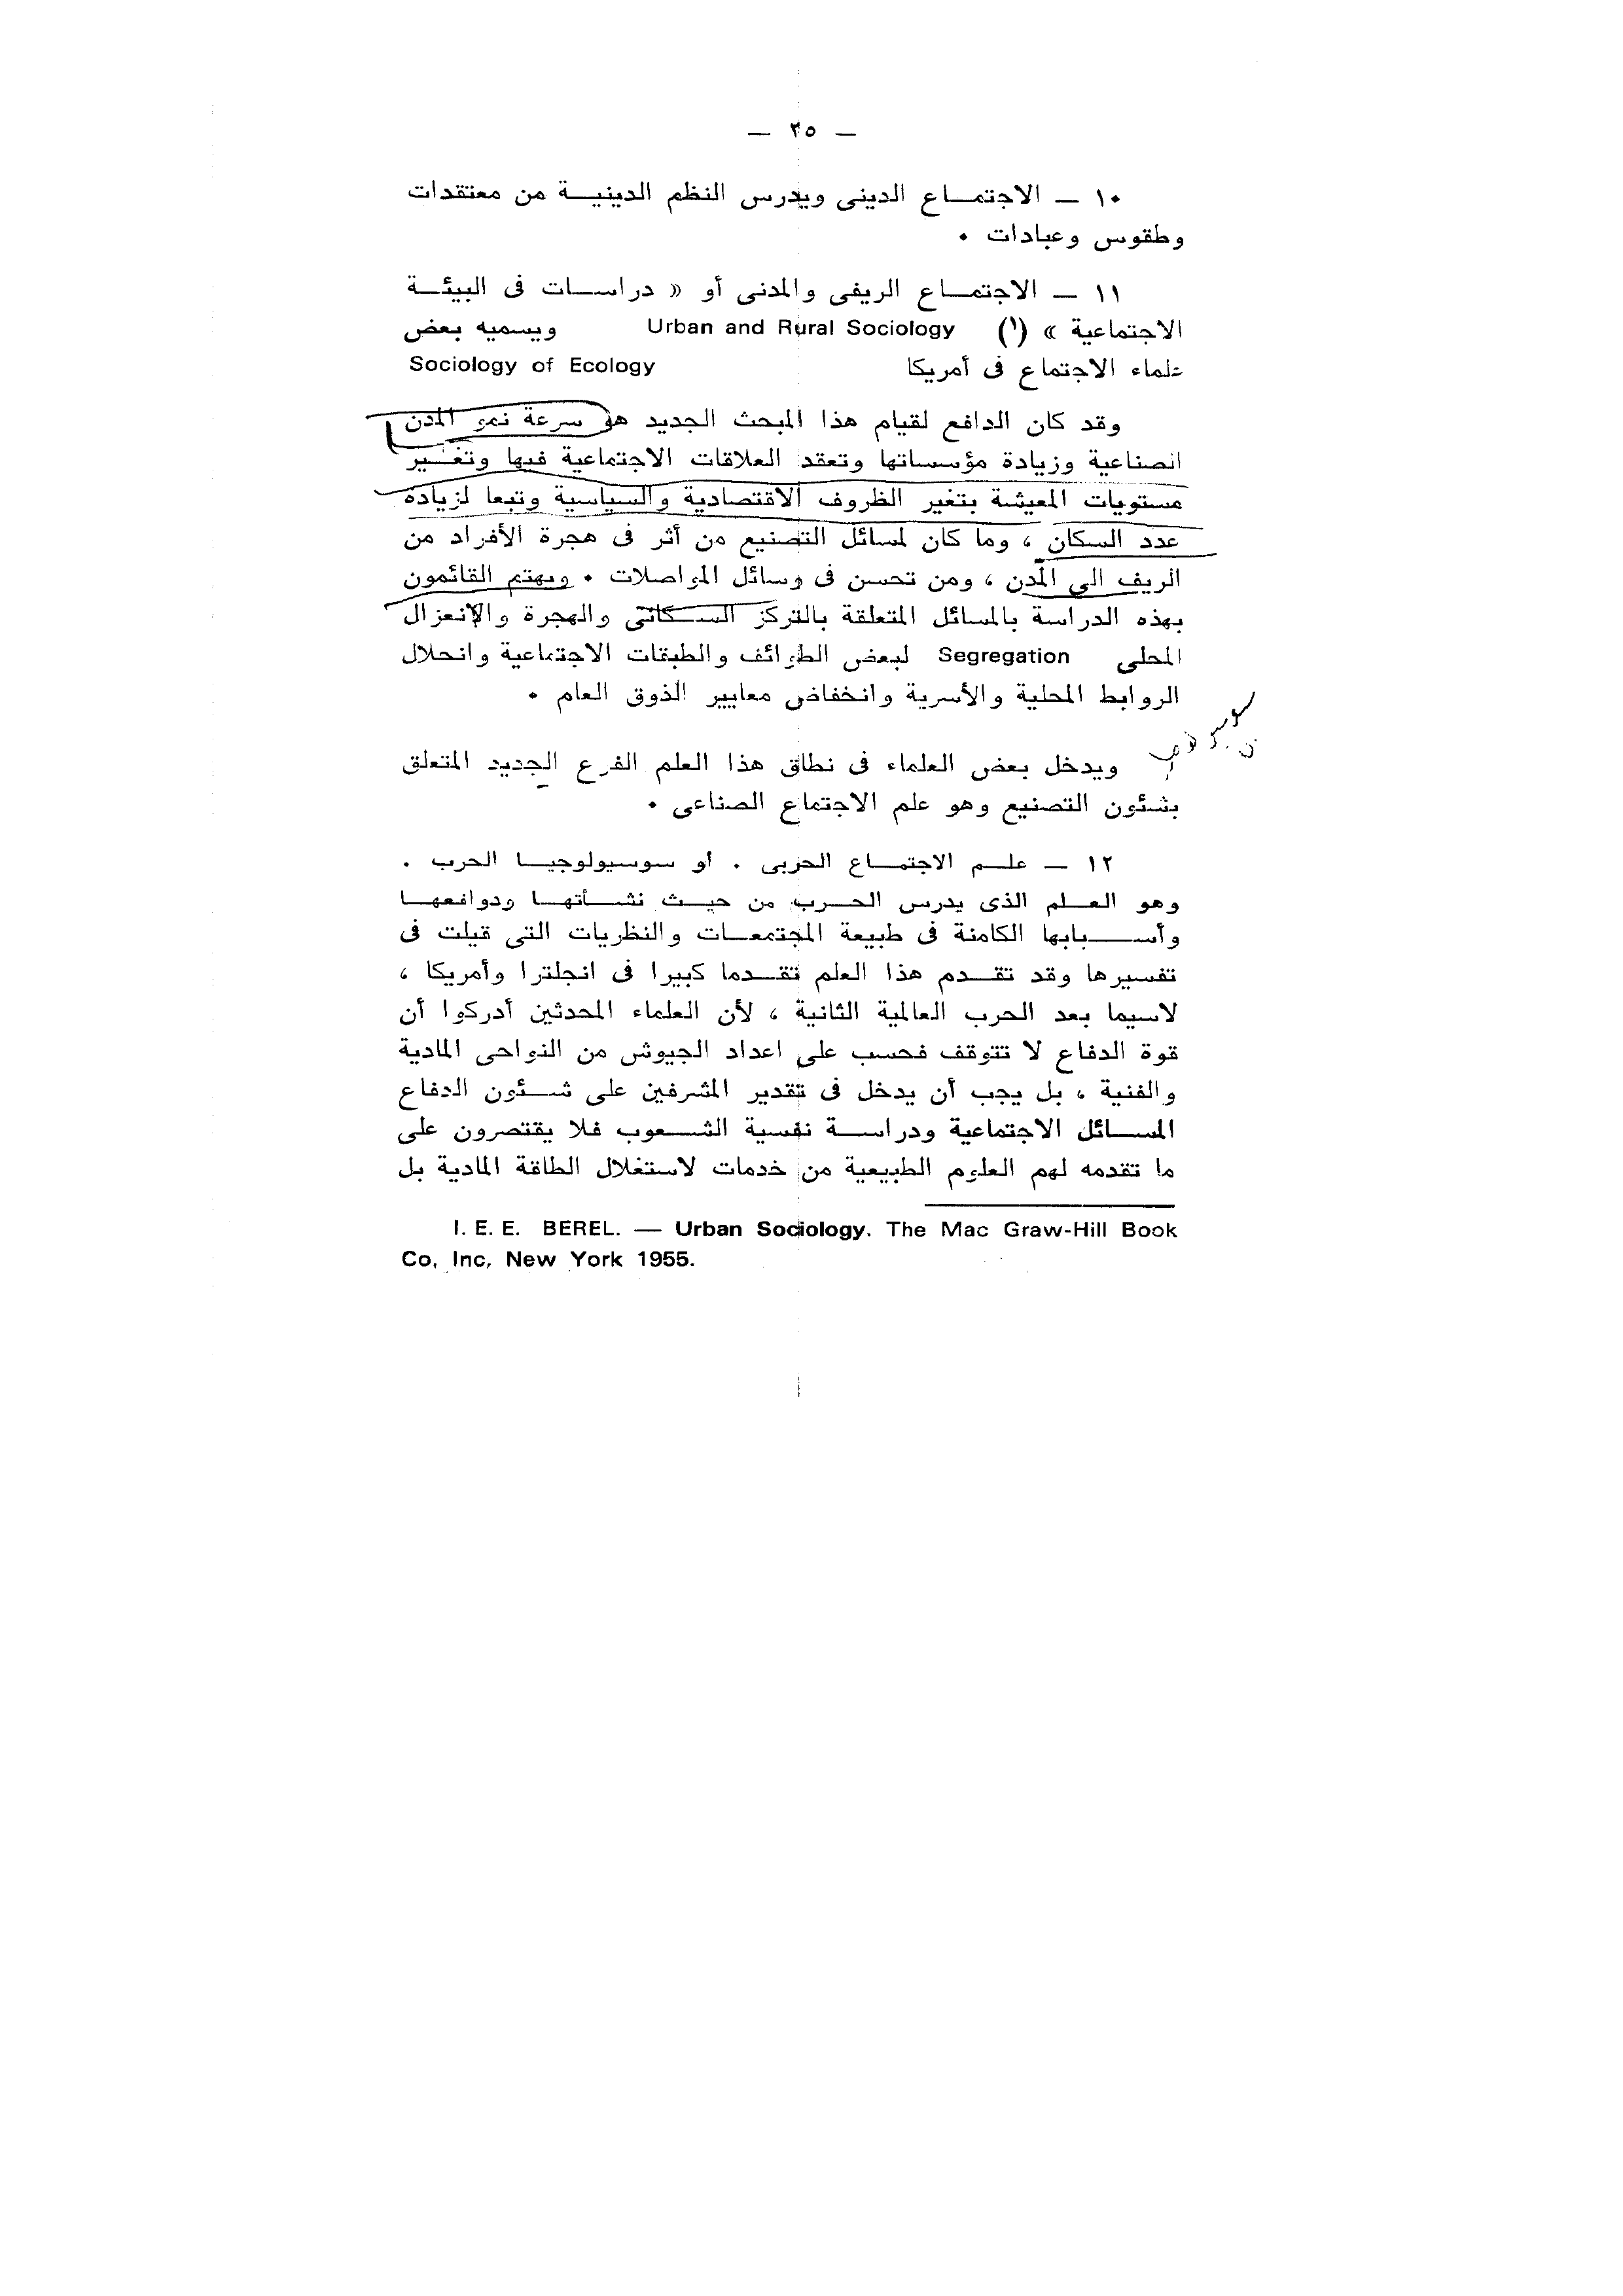 — ٢٥ —
١٠ — الاجتمـاع الدينى ويدرس النظم الدينيـة من معتقدات
وطقوس وعبادات •
١١ — الاجتمـاع الريفى والمدنى أو « دراسـات فى البيئـة
الاجتماعية » (١) Urban and Rural Sociology ويسميه بعض
علماء الاجتماع فى أمريكا Sociology of Ecology
وقد كان الدافع لقيام هذا المبحث الجديد هو سرعة نمو المدن
الصناعية وزيادة مؤسساتها وتعقد العلاقات الاجتماعية فيها وتغـير
مستويات المعيشة بتغير الظروف الاقتصادية والسياسية وتبعا لزيادة
عدد السكان ، وما كان لمسائل التصنيع من أثر فى هجرة الأفراد من
الريف الى المدن ، ومن تحسن فى وسائل المواصلات • ويهتم القائمون
بهذه الدراسة بالمسائل المتعلقة بالتركز السـكانى والهجرة والانعزال
المحلى Segregation لبعض الطوائف والطبقات الاجتماعية وانحلال
الروابط المحلية والأسرية وانخفاض معايير الذوق العام •
ويدخل بعض العلماء فى نطاق هذا العلم الفرع الجديد المتعلق
بشئون التصنيع وهو علم الاجتماع الصناعى •
١٢ — علـم الاجتمـاع الحربى . أو سوسيولوجيـا الحرب .
وهو العـلم الذى يدرس الحـرب من حيـث نشـأتهـا ودوافعهـا
وأسـبابها الكامنة فى طبيعة المجتمعـات والنظريات التى قيلت فى
تفسيرها وقد تقـدم هذا العلم تقـدما كبيرا فى انجلترا وأمريكا ،
لاسيما بعد الحرب العالمية الثانية ، لأن العلماء المحدثين أدركوا أن
قوة الدفاع لا تتوقف فحسب على اعداد الجيوش من النواحى المادية
والفنية ، بل يجب أن يدخل فى تقدير المشرفين على شـئون الدفاع
المسـائل الاجتماعية ودراسـة نفسية الشـعوب فلا يقتصرون على
ما تقدمه لهم العلوم الطبيعية من خدمات لاستغلال الطاقة المادية بل
I. E. E. BEREL. — Urban Sociology. The Mac Graw-Hill Book
Co, Inc, New York 1955.